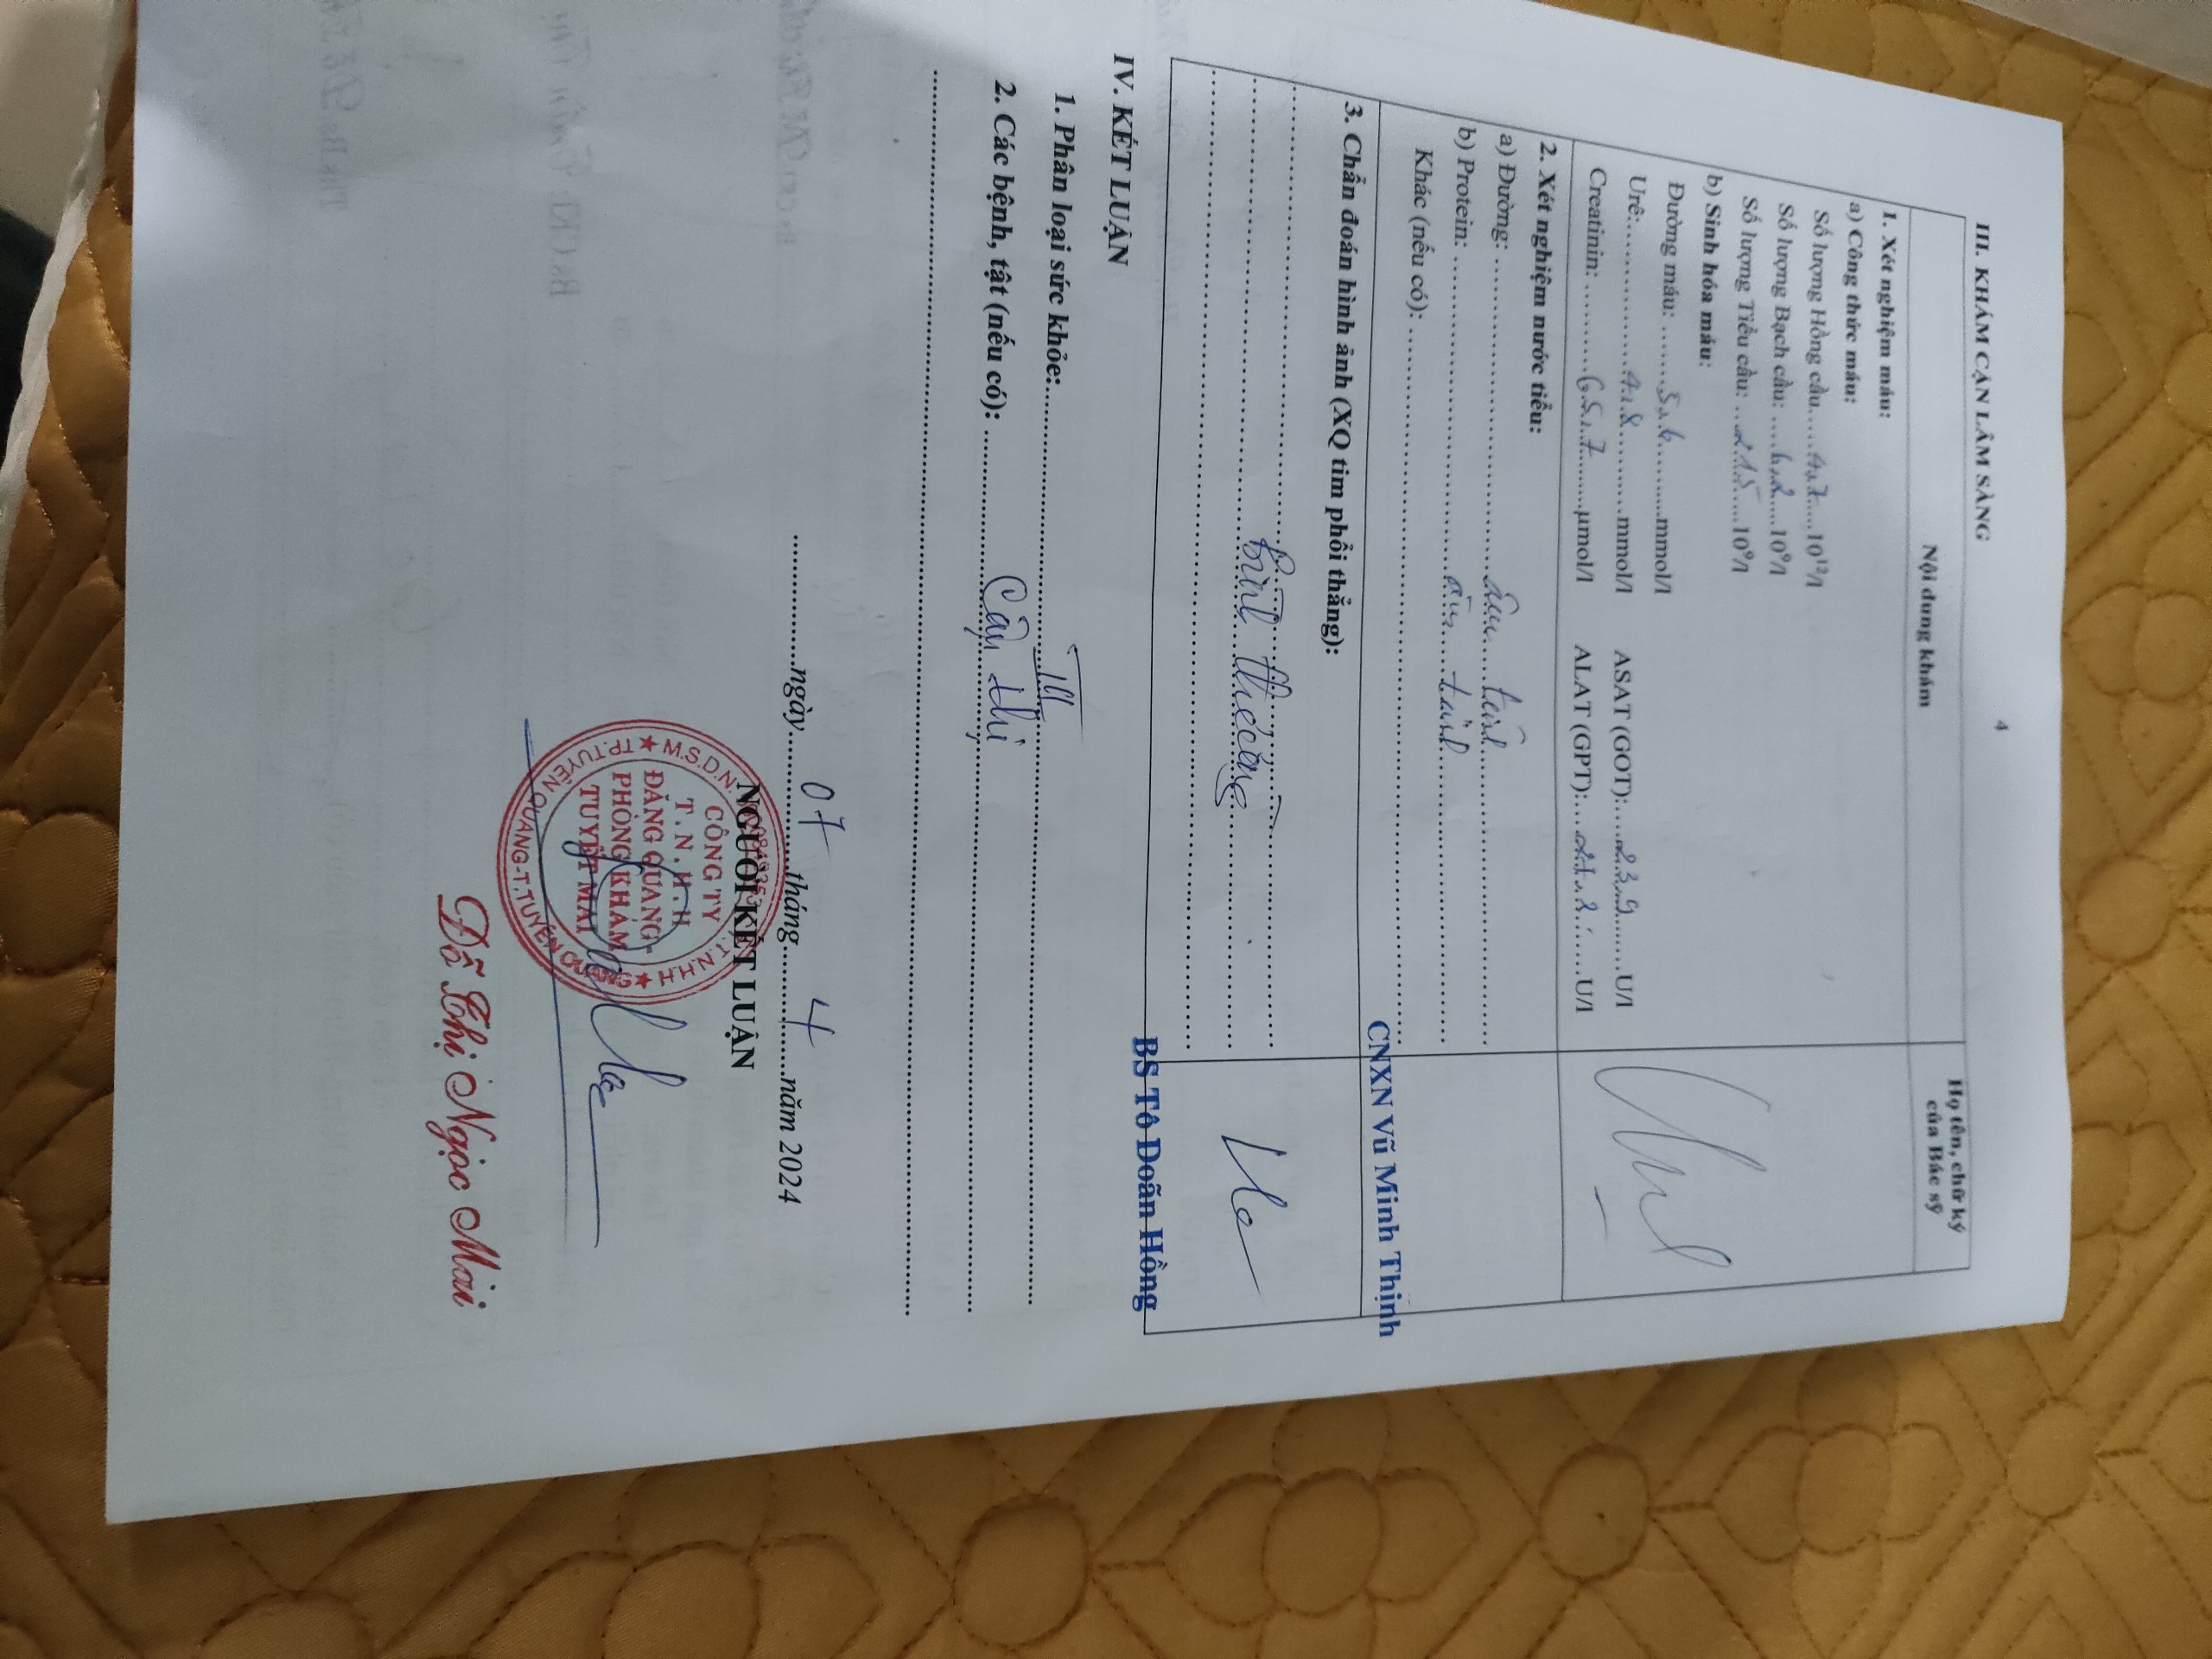 4
III. KHÁM CẬN LÂM SÀNG
Nội dung khám
Họ tên, chữ ký
của Bác sỹ
1. Xét nghiệm máu:
a) Công thức máu:
Số lượng Hồng cầu......4,7....10¹²/l
Số lượng Bạch cầu: .....6,2....10⁹/l
Số lượng Tiểu cầu: ...215....10⁹/l
b) Sinh hóa máu:
Đường máu: ........5,6..........mmol/l
Urê:................4,8............mmol/l ASAT (GOT):....23,9.......U/l
Creatinin: ..........65,7........µmol/l ALAT (GPT):...21,2.......U/l
2. Xét nghiệm nước tiểu:
a) Đường: ........âm tính........
b) Protein: ........âm tính........
Khác (nếu có): ........
CNXN Vũ Minh Thịnh
3. Chẩn đoán hình ảnh (XQ tim phổi thẳng):
Bình thường
BS Tô Doãn Hồng
IV. KẾT LUẬN
1. Phân loại sức khỏe:........III........
2. Các bệnh, tật (nếu có): ........Cận thị........
............ngày.....07.....tháng.....4.....năm 2024
NGƯỜI KẾT LUẬN
CÔNG TY
T.N.H.H
ĐĂNG QUANG-
PHÒNG KHÁM
TUYẾT MAI
M.S.D.N:
T.N.H.H
TP.TUYÊN QUANG-T.TUYÊN QUANG
Đỗ Thị Ngọc Mai